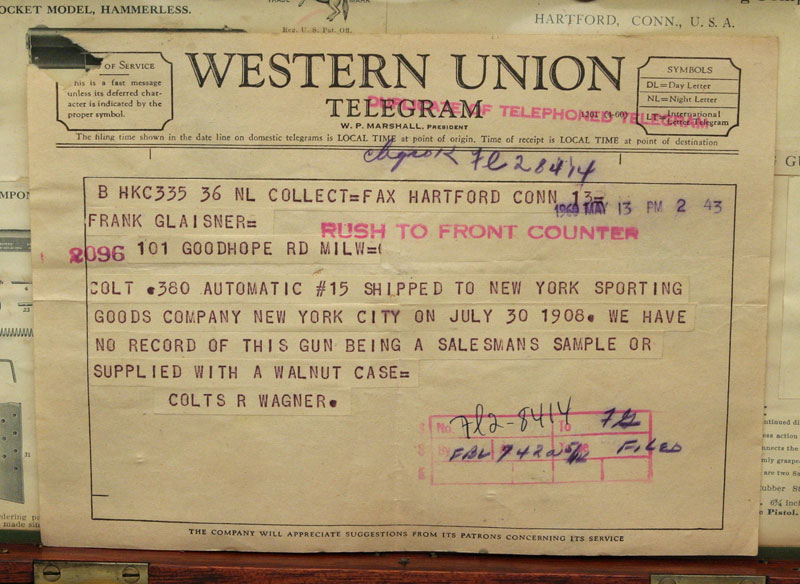 OCKET MODEL, HAMMERLESS.
Reg. U.S. Pat. Off.
HARTFORD, CONN., U. S. A.
OF SERVICE
This is a fast message
unless its deferred char-
acter is indicated by the
proper symbol.
WESTERN UNION
TELEGRAM
W. P. MARSHALL, PRESIDENT
DUPLICATE OF TELEPHONED TELEGRAM
1201 (4-60)
SYMBOLS
DL=Day Letter
NL=Night Letter
LT=International Letter Telegram
The filing time shown in the date line on domestic telegrams is LOCAL TIME at point of origin. Time of receipt is LOCAL TIME at point of destination
Fl 2 8414
B HKC335 36 NL COLLECT=FAX HARTFORD CONN 13=
1960 MAY 13 PM 2 43
FRANK GLAISNER=
RUSH TO FRONT COUNTER
2096 101 GOODHOPE RD MILW=
COLT .380 AUTOMATIC #15 SHIPPED TO NEW YORK SPORTING
GOODS COMPANY NEW YORK CITY ON JULY 30 1908. WE HAVE
NO RECORD OF THIS GUN BEING A SALESMANS SAMPLE OR
SUPPLIED WITH A WALNUT CASE=
COLTS R WAGNER.
No. Fl2-8414 To
By FBL 742a FILED
THE COMPANY WILL APPRECIATE SUGGESTIONS FROM ITS PATRONS CONCERNING ITS SERVICE